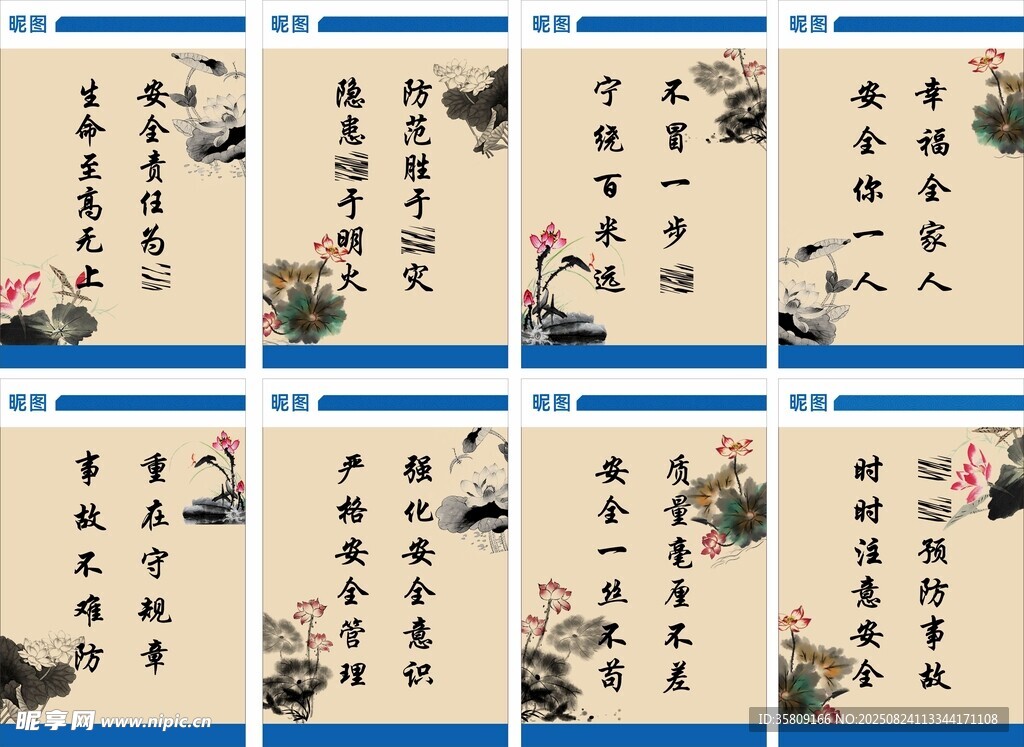 昵图
安全责任为
生命至高无上
昵图
防范胜于 灾
隐患 于明火
昵图
不冒一步
宁绕百米远
昵图
幸福全家人
安全你一人
昵图
重在守规章
事故不难防
昵图
强化安全意识
严格安全管理
昵图
质量毫厘不差
安全一丝不苟
昵图
预防事故
时时注意安全
昵享网 www.nipic.cn
ID:35809166 NO:20250824113344171108